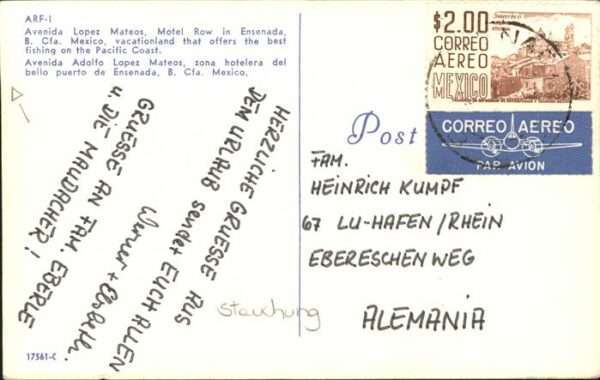 ARF-1
Avenida Lopez Mateos, Motel Row in Ensenada,
B. Cfa. Mexico, vacationland that offers the best
fishing on the Pacific Coast.
Avenida Adolfo Lopez Mateos, zona hotelera del
bello puerto de Ensenada, B. Cfa. Mexico.
HERZLICHE GRUESSE AUS
DEM URLAUB sendet EUCH ALLEN
Werner +
GRUESSE AN FAM. EBERLE
u. DIE MAUDACHER!
Post
$2.00
CORREO
AEREO
MEXICO
CORREO AEREO
PAR AVION
FAM.
HEINRICH KUMPF
67 LU-HAFEN/RHEIN
EBERESCHENWEG
ALEMANIA
stauchung
17561-C